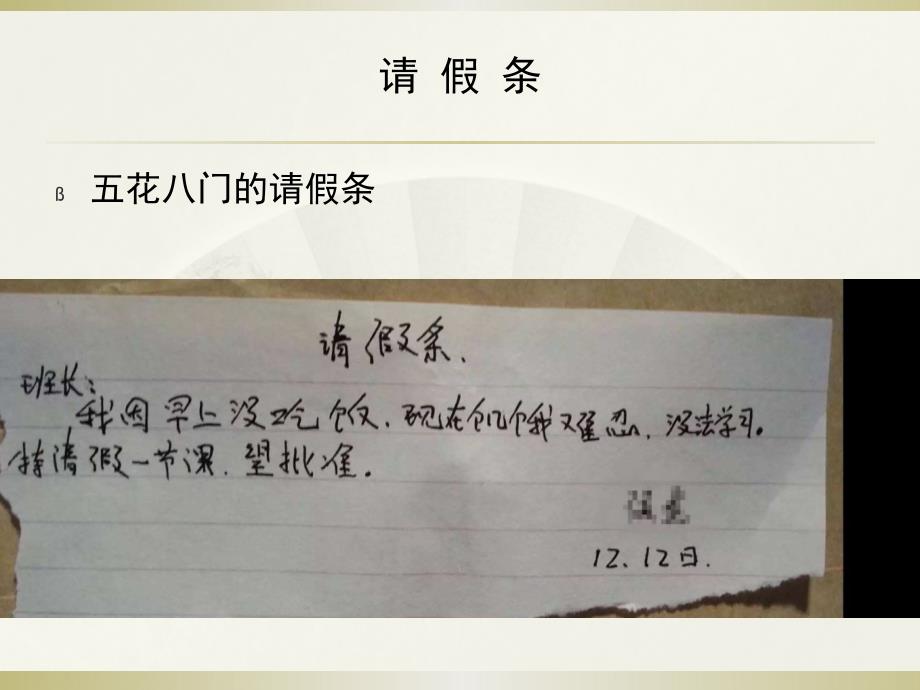 请 假 条
ß 五花八门的请假条
请假条.
班长:
我因早上没吃饭.现在饥饿难忍.没法学习。
特请假一节课.望批准。
12.12日.